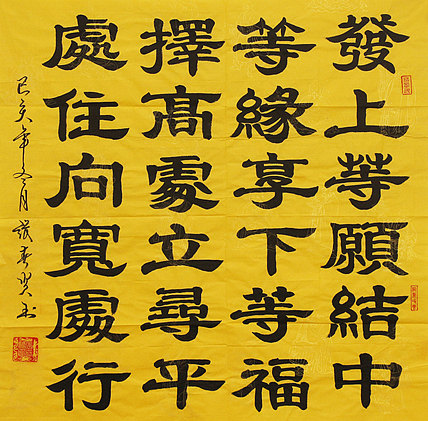 發上等願結中
等緣享下等福
擇高處立尋平
處住向寬處行
己亥年冬月